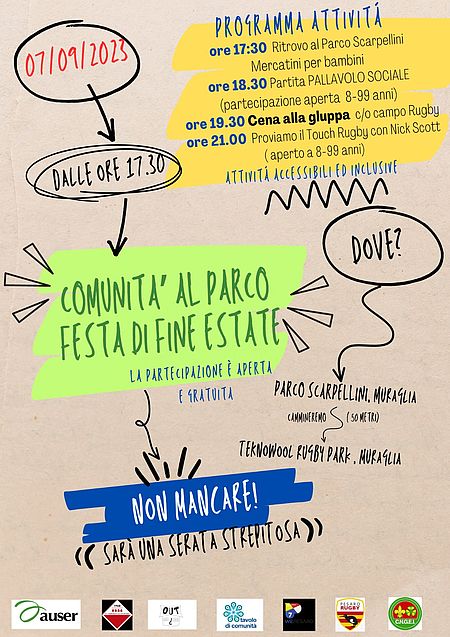 07/09/2023
DALLE ORE 17.30
PROGRAMMA ATTIVITÁ
ore 17:30 Ritrovo al Parco Scarpellini
Mercatini per bambini
ore 18.30 Partita PALLAVOLO SOCIALE
(partecipazione aperta 8-99 anni)
ore 19.30 Cena alla gluppa c/o campo Rugby
ore 21.00 Proviamo il Touch Rugby con Nick Scott
( aperto a 8-99 anni)
ATTIVITÁ ACCESSIBILI ED INCLUSIVE
COMUNITA' AL PARCO
FESTA DI FINE ESTATE
LA PARTECIPAZIONE È APERTA
E GRATUITA
DOVE?
PARCO SCARPELLINI, MURAGLIA
CAMMINEREMO ( 50 METRI)
TEKNOWOOL RUGBY PARK , MURAGLIA
NON MANCARE!
(( SARÀ UNA SERATA STREPITOSA ))
auser
OUT
tavolo
di comunità
PESARO
RUGBY
C.N.G.E.I.